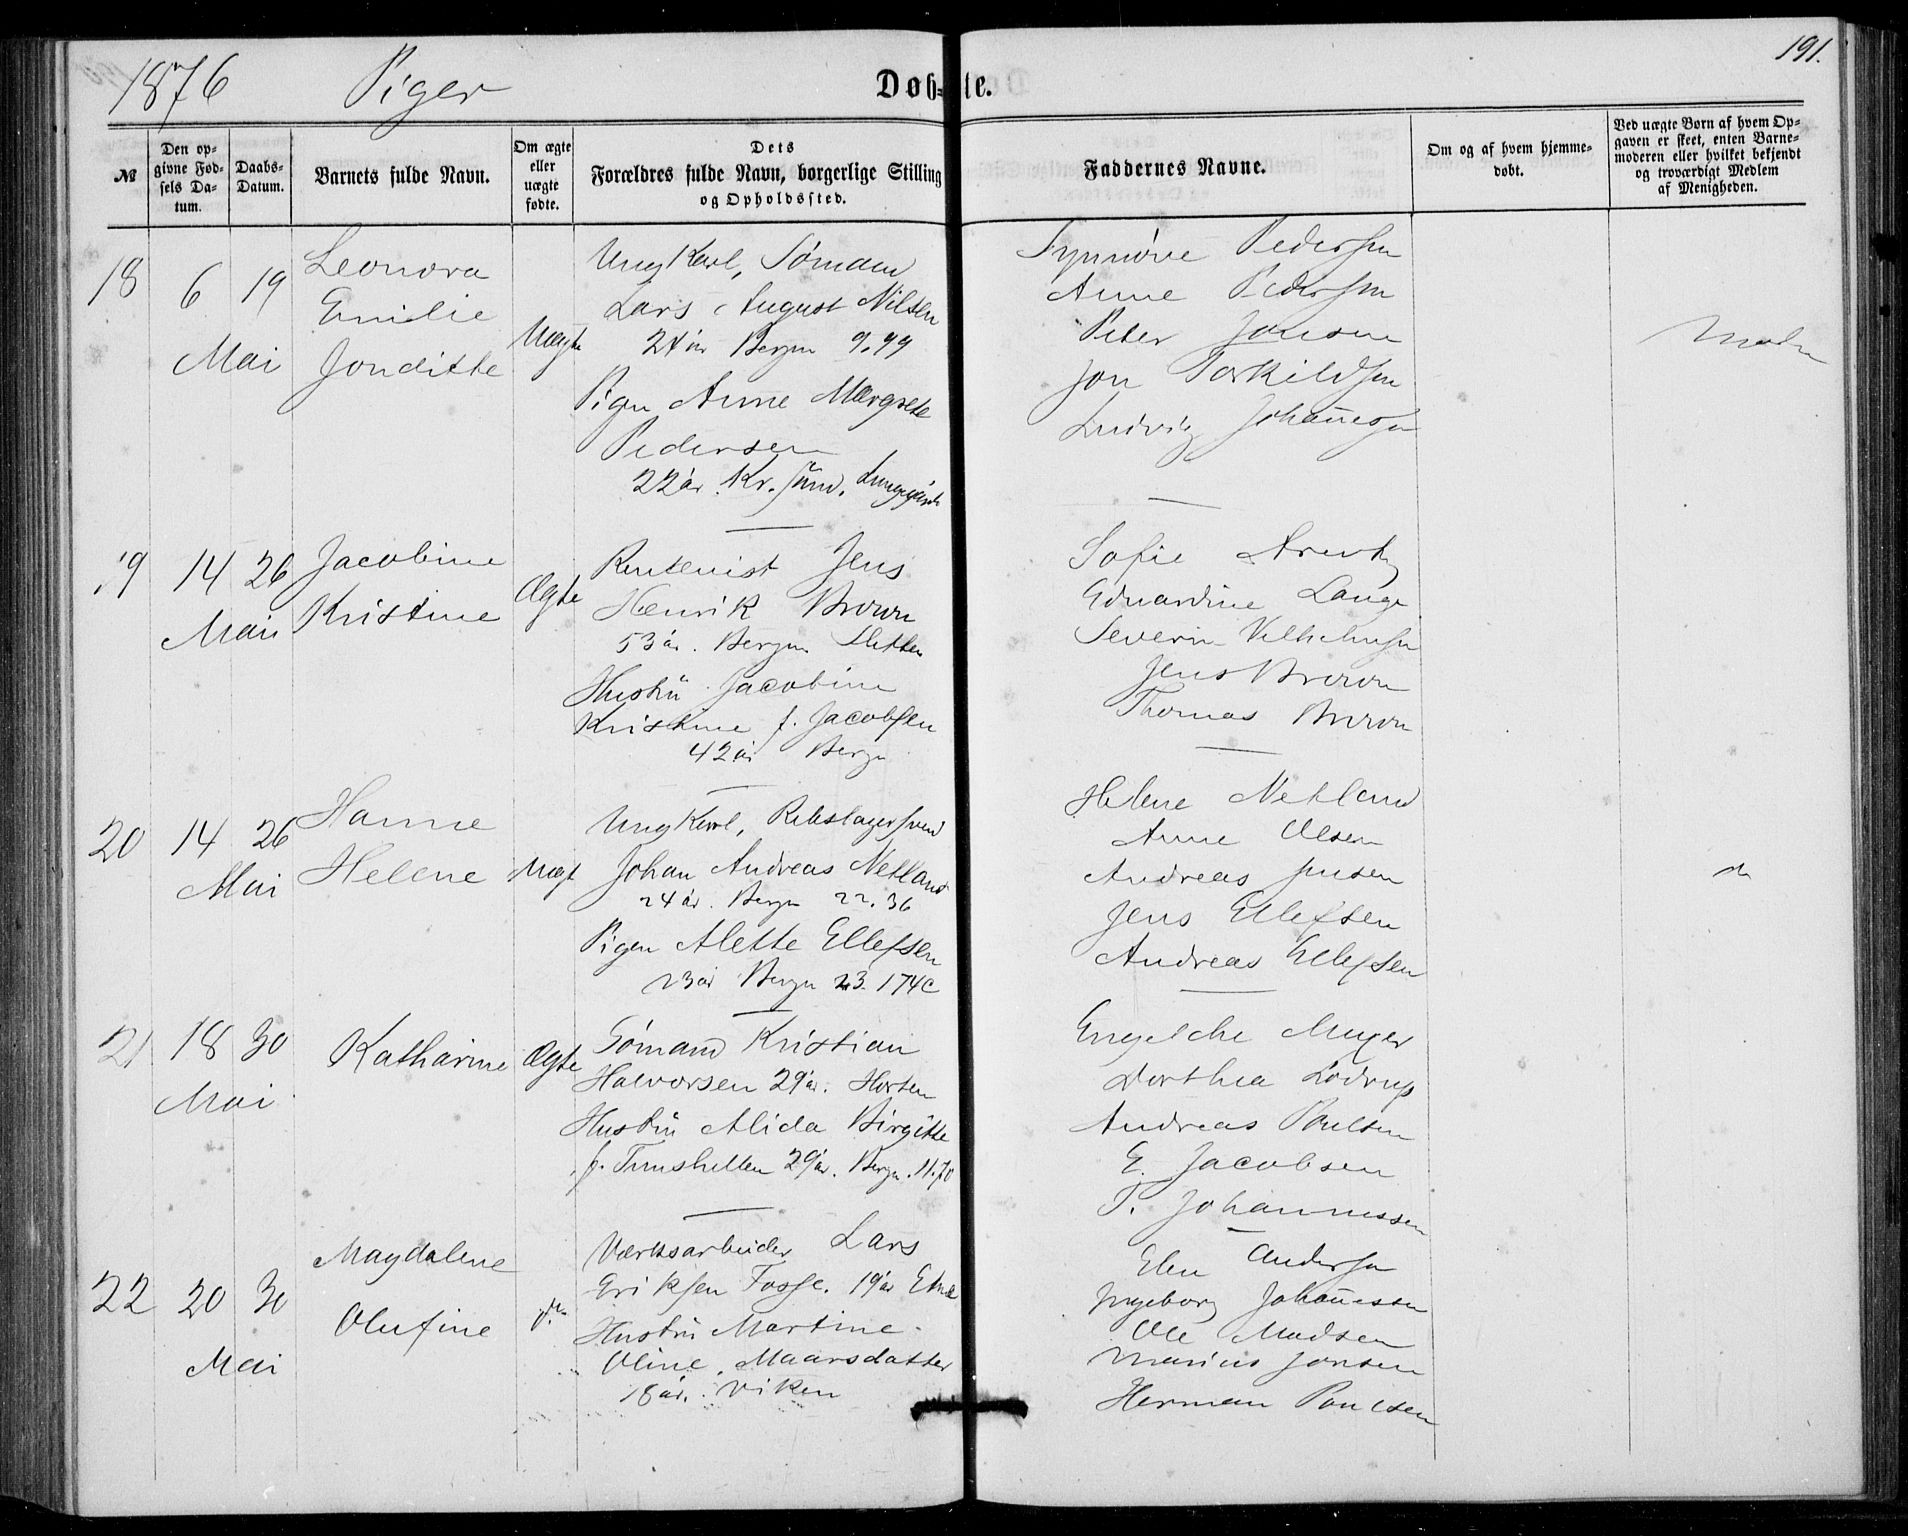 1876 Piger Døb-te. 191.
№
Den opgivne Fødsels Datum.
Daabs-Datum.
Barnets fulde Navn.
Om ægte eller uægte fødte.
Dets Forældres fulde Navn, borgerlige Stilling og Opholdssted.
Faddernes Navne.
Om og af hvem hjemmedøbt.
Ved uægte Børn af hvem Opgaven er skeet, enten Barnemoderen eller hvilket bekjendt og troværdigt Medlem af Menigheden.
18 6 19 Mai
Leonora
Emilie
Jonditte
Uægte
Ungkarl, Sømand
Lars August Nilsen
24 år Bergen 9.99
Pigen Anne Margrete
Pedersen
22 år. Kr.sund.
Synnøve Pedersen
Anne Pedersen
Peter Jonsen
Jon Torkildsen
Ludvig Johannesen
19 14 26 Mai
Jacobine
Kristine
Ægte
Rentenist Jens
Henrik Brown
53 år. Bergen Sletten
Hustru Jacobine
Kristine f. Jacobsen
42 år Bergen
Sofie
Eduardine Lange
Severin Vilhelmsen
Jens Brown
Thomas Brown
20 14 26 Mai
Hanne
Helene
Uægt
Ungkarl, Rebslagersvend
Johan Andreas Netland
24 år. Bergen 22.36
Pigen Alette Ellefsen
23 år Bergen 23.174c
Helene Netland
Anne Olsen
Andreas Jensen
Jens Ellefsen
Andreas Ellefsen
21 18 30 Mai
Katharine
Ægte
Sømand Kristian
Halvorsen 29 år. Horten
Hustru Alida Birgitte
f. 29 år. Bergen. 11.70
Engelche Meyer
Dorthea Lødrup
Andreas Poulsen
E. Jacobsen
T. Johannessen
22 20 30 Mai
Magdalene
Olufine
do
Værksarbeider Lars
Eriksen Fosse. 19 år Etne
Hustru Martine
Oline Maarsdatter
18 år. Viken
Elen Andersen
Ingeborg Johannessen
Ole Madsen
Marius Jonsen
Herman Poulsen